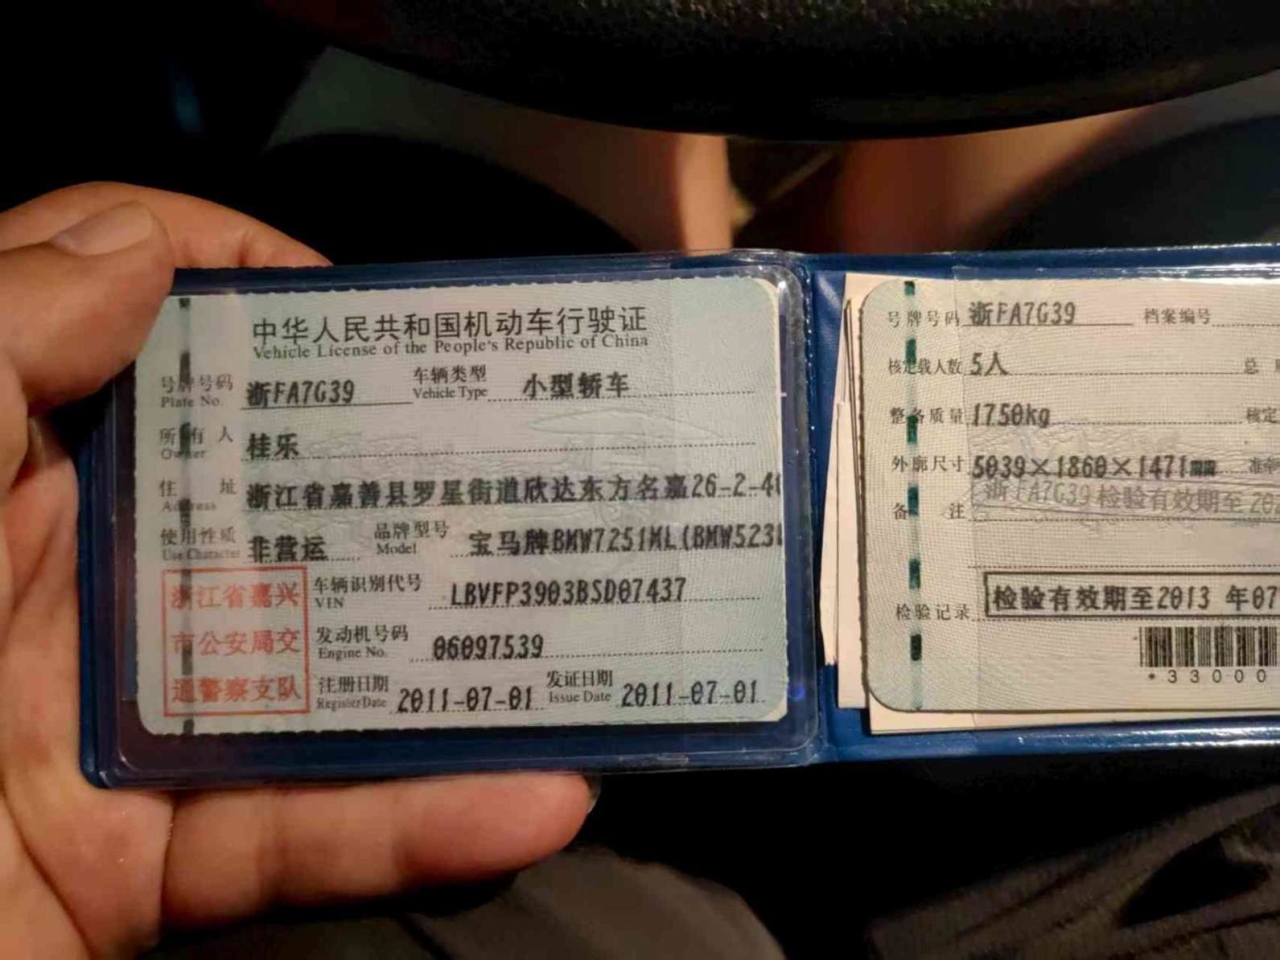 中华人民共和国机动车行驶证
Vehicle License of the People's Republic of China
号牌号码 浙FA7G39 车辆类型 小型轿车
Plate No. Vehicle Type
所有人 桂乐
Owner
住址 浙江省嘉善县罗星街道欣达东方名嘉26-2-4
Address
使用性质 非营运 品牌型号 宝马牌BMW7251ML(BMW523
Use Character Model
浙江省嘉兴
市公安局交
通警察支队
车辆识别代号 LBVFP3903BSD07437
VIN
发动机号码 06097539
Engine No.
注册日期 2011-07-01 发证日期 2011-07-01
Register Date Issue Date
号牌号码 浙FA7G39 档案编号
核定载人数 5人 总
整备质量 1750kg 核定
外廓尺寸 5039×1860×1471mm 准牵
备注 浙FA7G39 检验有效期至 20
检验记录 检验有效期至2013 年07
*33000